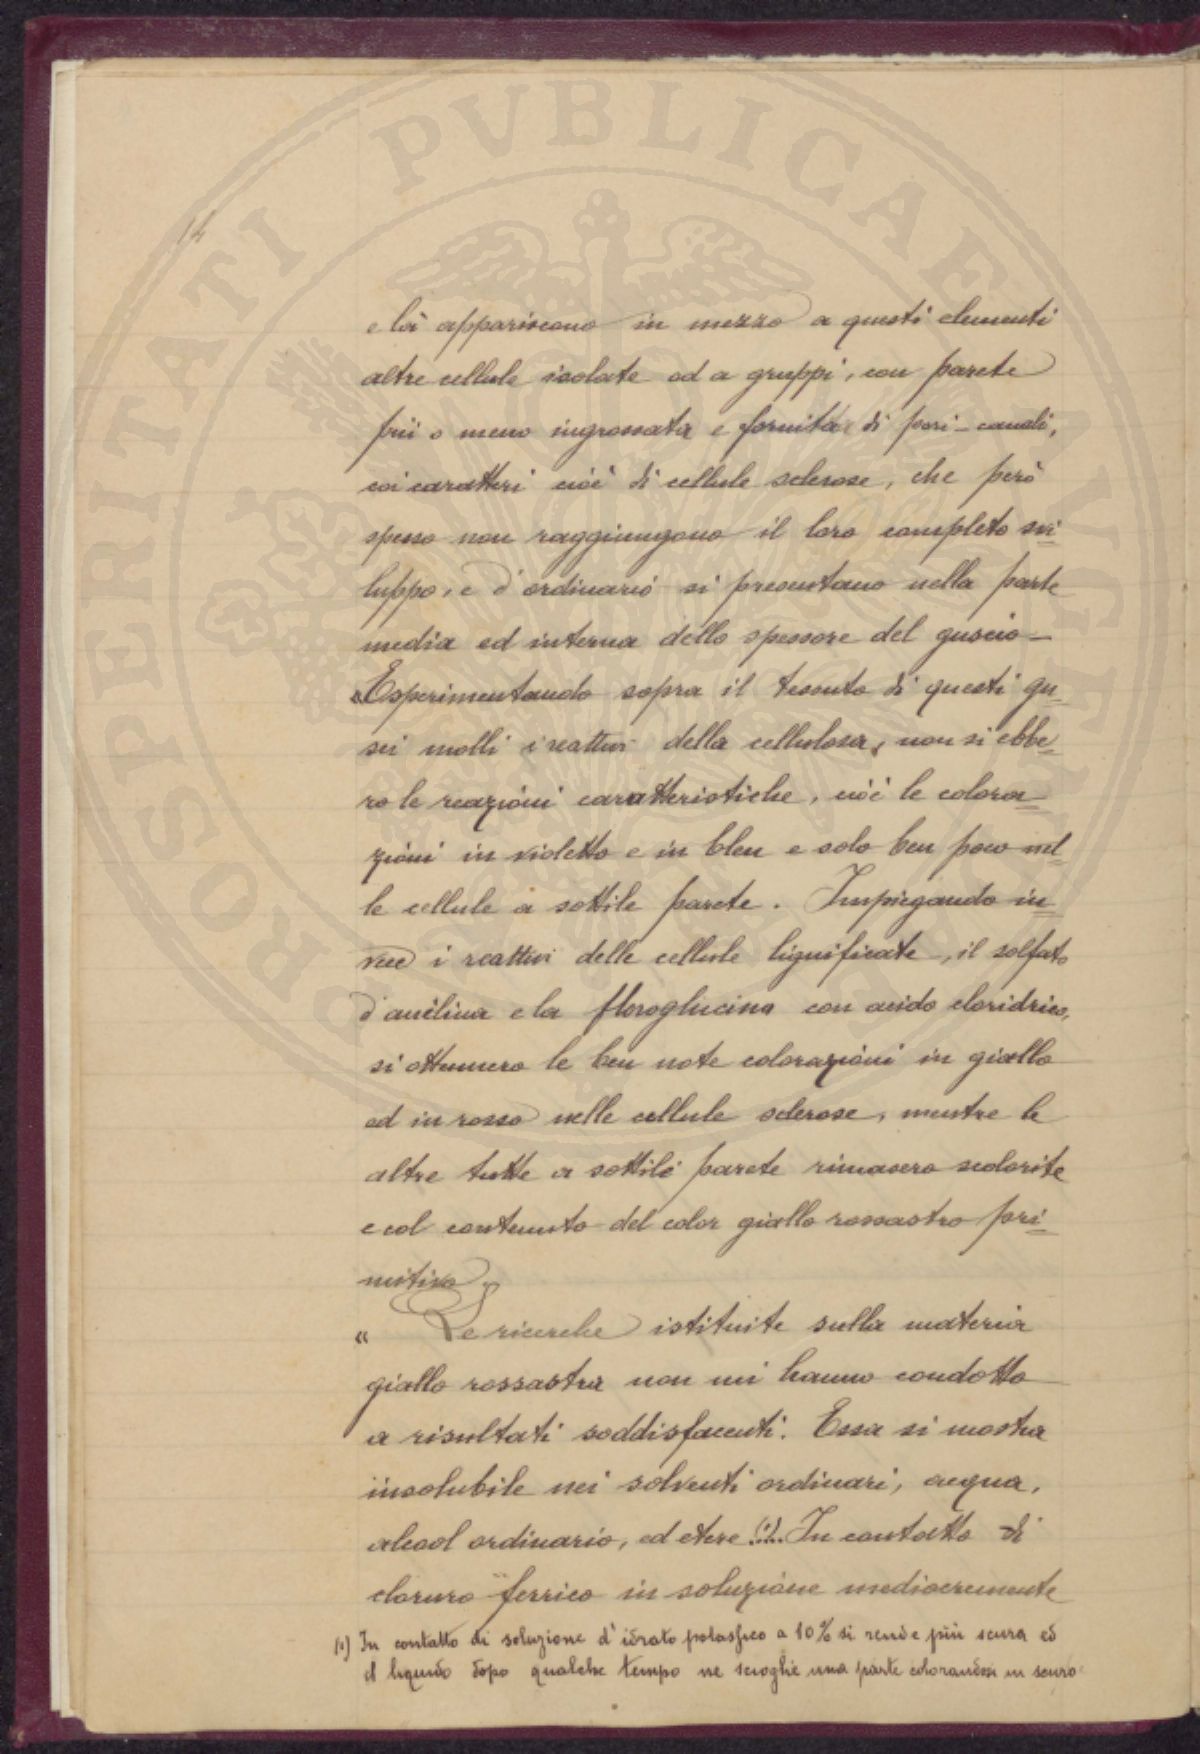 14
PROSPERITATI PVBLICAE AVGENDAE
e là appariscono in mezzo a questi elementi
altre cellule isolate od a gruppi, con parete
più o meno ingrossata e fornita di pori-canali,
coi caratteri cioè di cellule sclerose, che però
spesso non raggiungono il loro completo svi-
luppo, e d'ordinario si presentano nella parte
media ed interna dello spessore del guscio –
"Esperimentando sopra il tessuto di questi gu-
sci molli i reattivi della cellulosa, non si ebbe-
ro le reazioni caratteristiche, cioè le colora-
zioni in violetto e in bleu e solo ben poco nel-
le cellule a sottile parete. Impiegando in-
vece i reattivi delle cellule lignificate, il solfato
d'anilina e la floroglucina con acido cloridrico,
si ottennero le ben note colorazioni in giallo
ed in rosso nelle cellule sclerose, mentre le
altre tutte a sottile parete rimasero scolorite
e col contenuto del color giallo rossastro pri-
mitivo.
" Le ricerche istituite sulla materia
giallo rossastra non mi hanno condotto
a risultati soddisfacenti. Essa si mostra
insolubile nei solventi ordinari, acqua,
alcool ordinario, ed etere (1). In contatto di
cloruro ferrico in soluzione mediocremente
(1) In contatto di soluzione d'idrato potassico a 10% si rende più scura ed
il liquido dopo qualche tempo ne scioglie una parte colorandosi in scuro